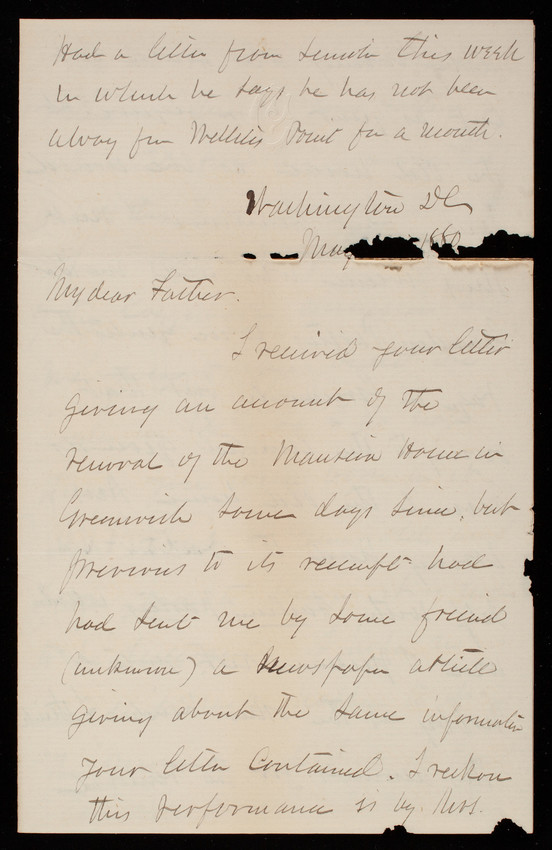 Had a letter from Lincoln this week
in which he says he has not been
away from Willets Point for a month.
Washington DC
May 1880
My dear Father.
I received your letter
giving an account of the
removal of the Mansion House in
Greenwich some days since, but
previous to its receipt had
had sent me by some friend
(unknown) a newspaper article
giving about the same information
your letter contained. I reckon
this performance is by Mrs.